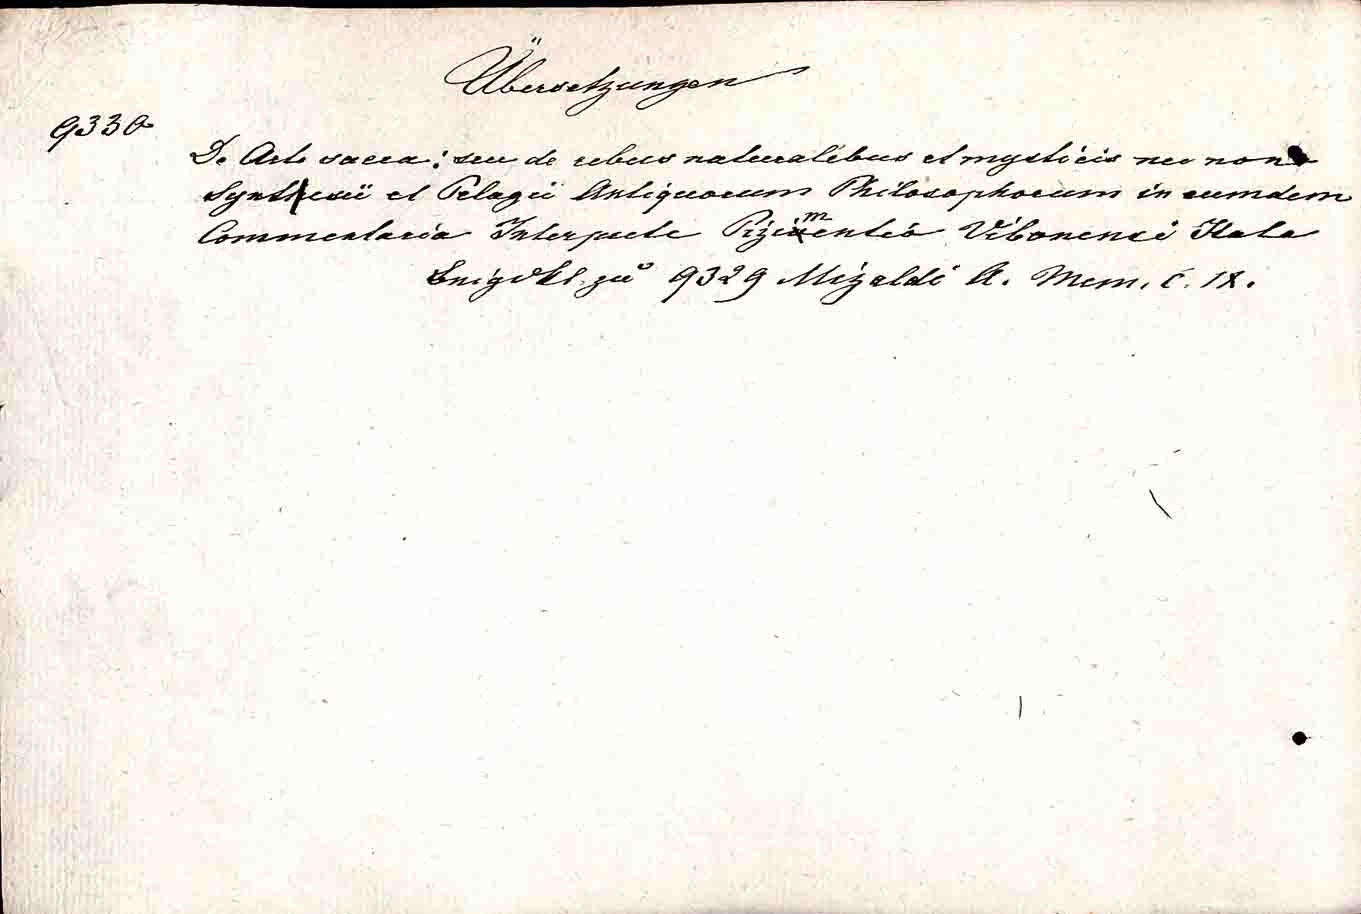 Übersetzungen
9330
De Arte sacra: seu de rebus naturalibus et mysticis nec non
Synthesii et Pelagii Antiquorum Philosophorum in eumdem
Commentaria Interprete Pizimentio Vibonensi Italo
zu 9329 Mizaldi A. Mem. C. IX.